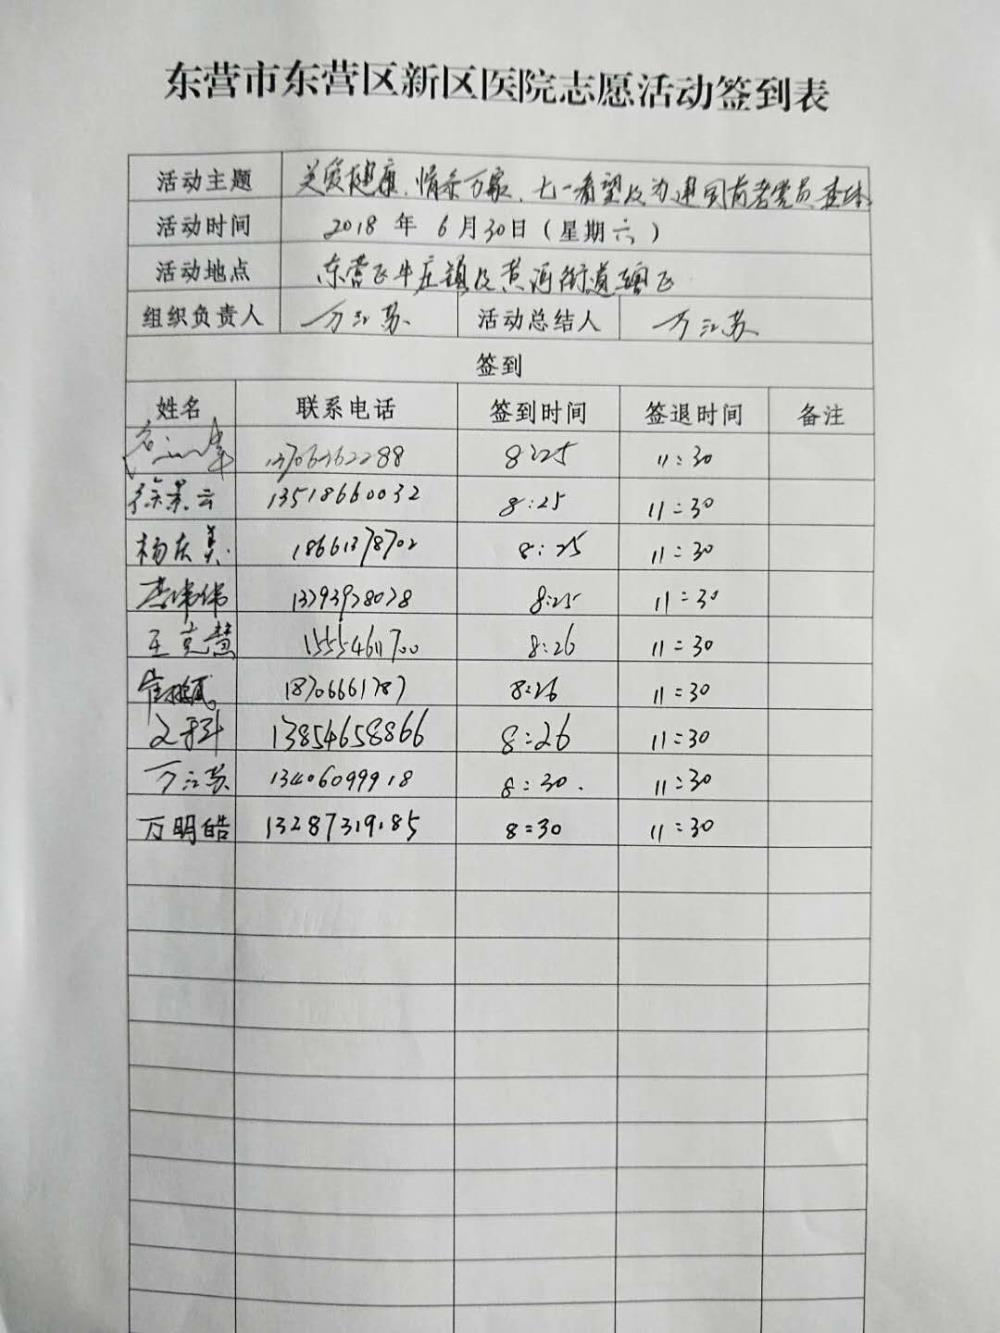 东营市东营区新区医院志愿活动签到表
活动主题 关爱健康、情系万家、七一看望及为建国前老党员查体
活动时间 2018 年 6 月 30 日（星期 六 ）
活动地点 东营区牛庄镇及黄河街道辖区
组织负责人 万江苏 活动总结人 万江苏
签到
姓名 联系电话 签到时间 签退时间 备注
13706362288 8:25 11:30
徐景云 13518660032 8:25 11:30
杨庆美 18661378702 8:25 11:30
李伟伟 13793978078 8:25 11:30
王克慧 15554611700 8:26 11:30
18706661787 8:26 11:30
13854658866 8:26 11:30
万江苏 13406099918 8:30 11:30
万明皓 13287319185 8:30 11:30